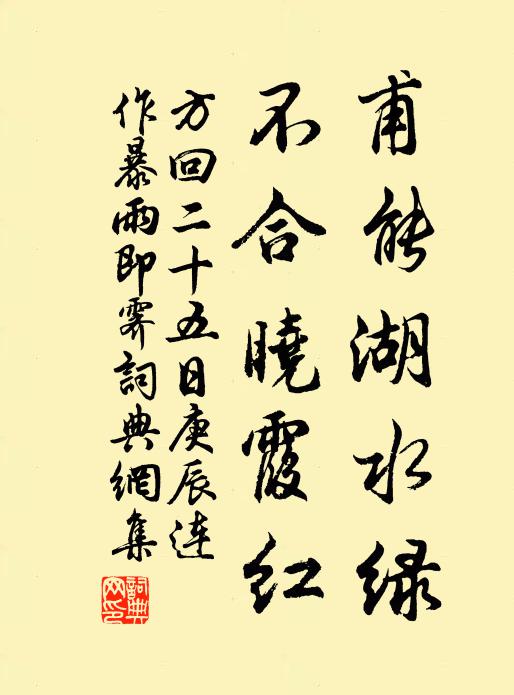 甫能湖水绿
不合曉霞紅
方回二十五日庚辰连
作暴雨即霽詞典網集
詞典网印